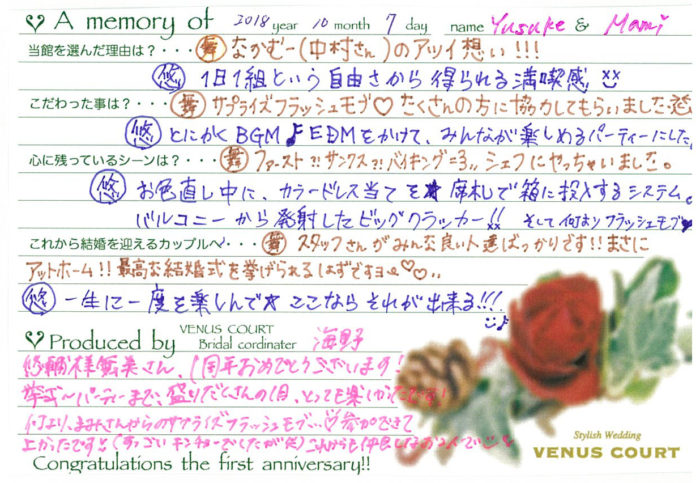 A memory of 2018 year 10 month 7 day name Yusuke & Mami
当館を選んだ理由は？・・・舞 なかむー(中村さん)のアツイ想い!!!
悠 1日1組という自由さから得られる満喫感
こだわった事は？・・・舞 サプライズフラッシュモブ♡たくさんの方に協力してもらいました
悠 とにかくBGM♪EDMをかけて、みんなが楽しめるパーティーにした。
心に残っているシーンは？・・舞 ファースト?!サンクス?!バイキング=3,, シェフにヤっちゃいました。
悠 お色直し中に、カラードレス当てを★席札で箱に投入するシステム。
バルコニーから発射したビッグクラッカー!! そして何よりフラッシュモブ♥
これから結婚を迎えるカップルへ・・・舞 スタッフさんがみんな良い人達ばっかりです!!まさに
アットホーム!!最高な結婚式を挙げられるはずですヨ♡♡,,
悠 一生に一度を楽しんで★ここならそれが出来る!!!
Produced by VENUS COURT Bridal cordinater 海野
さん、1周年おめでとうございます!
挙式〜パーティーまで、盛りだくさんの1日、とっても楽しかったです!
何より、まみさんからのサプライズフラッシュモブ…♡参加できて
よかったです!(すっごいキンチョーでしたが笑)これからも仲良し
Congratulations the first anniversary!!
Stylish Wedding
VENUS COURT